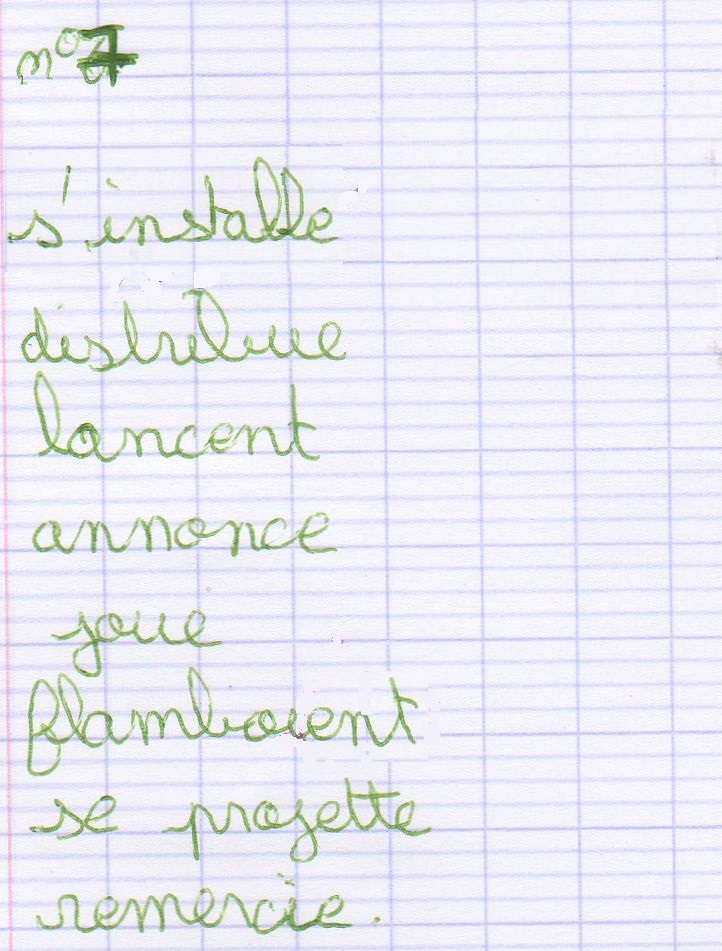 n°7
s'installe
distribue
lancent
annonce
joue
flamboient
se projette
remercie.